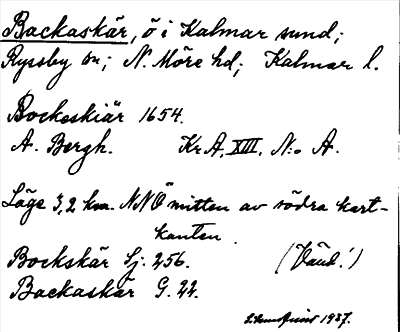 Backaskär, ö i Kalmar sund;
Ryssby sn; N. Möre hd; Kalmar l.
Bockeskiär 1654.
A. Bergh. Kr.A. XIII. N:o A.
Läge 3,2 km. NNÖ mitten av södra kart-
kanten.
Bockskär Sj. 256. (Vänd!)
Backaskär G. 22.
1937.